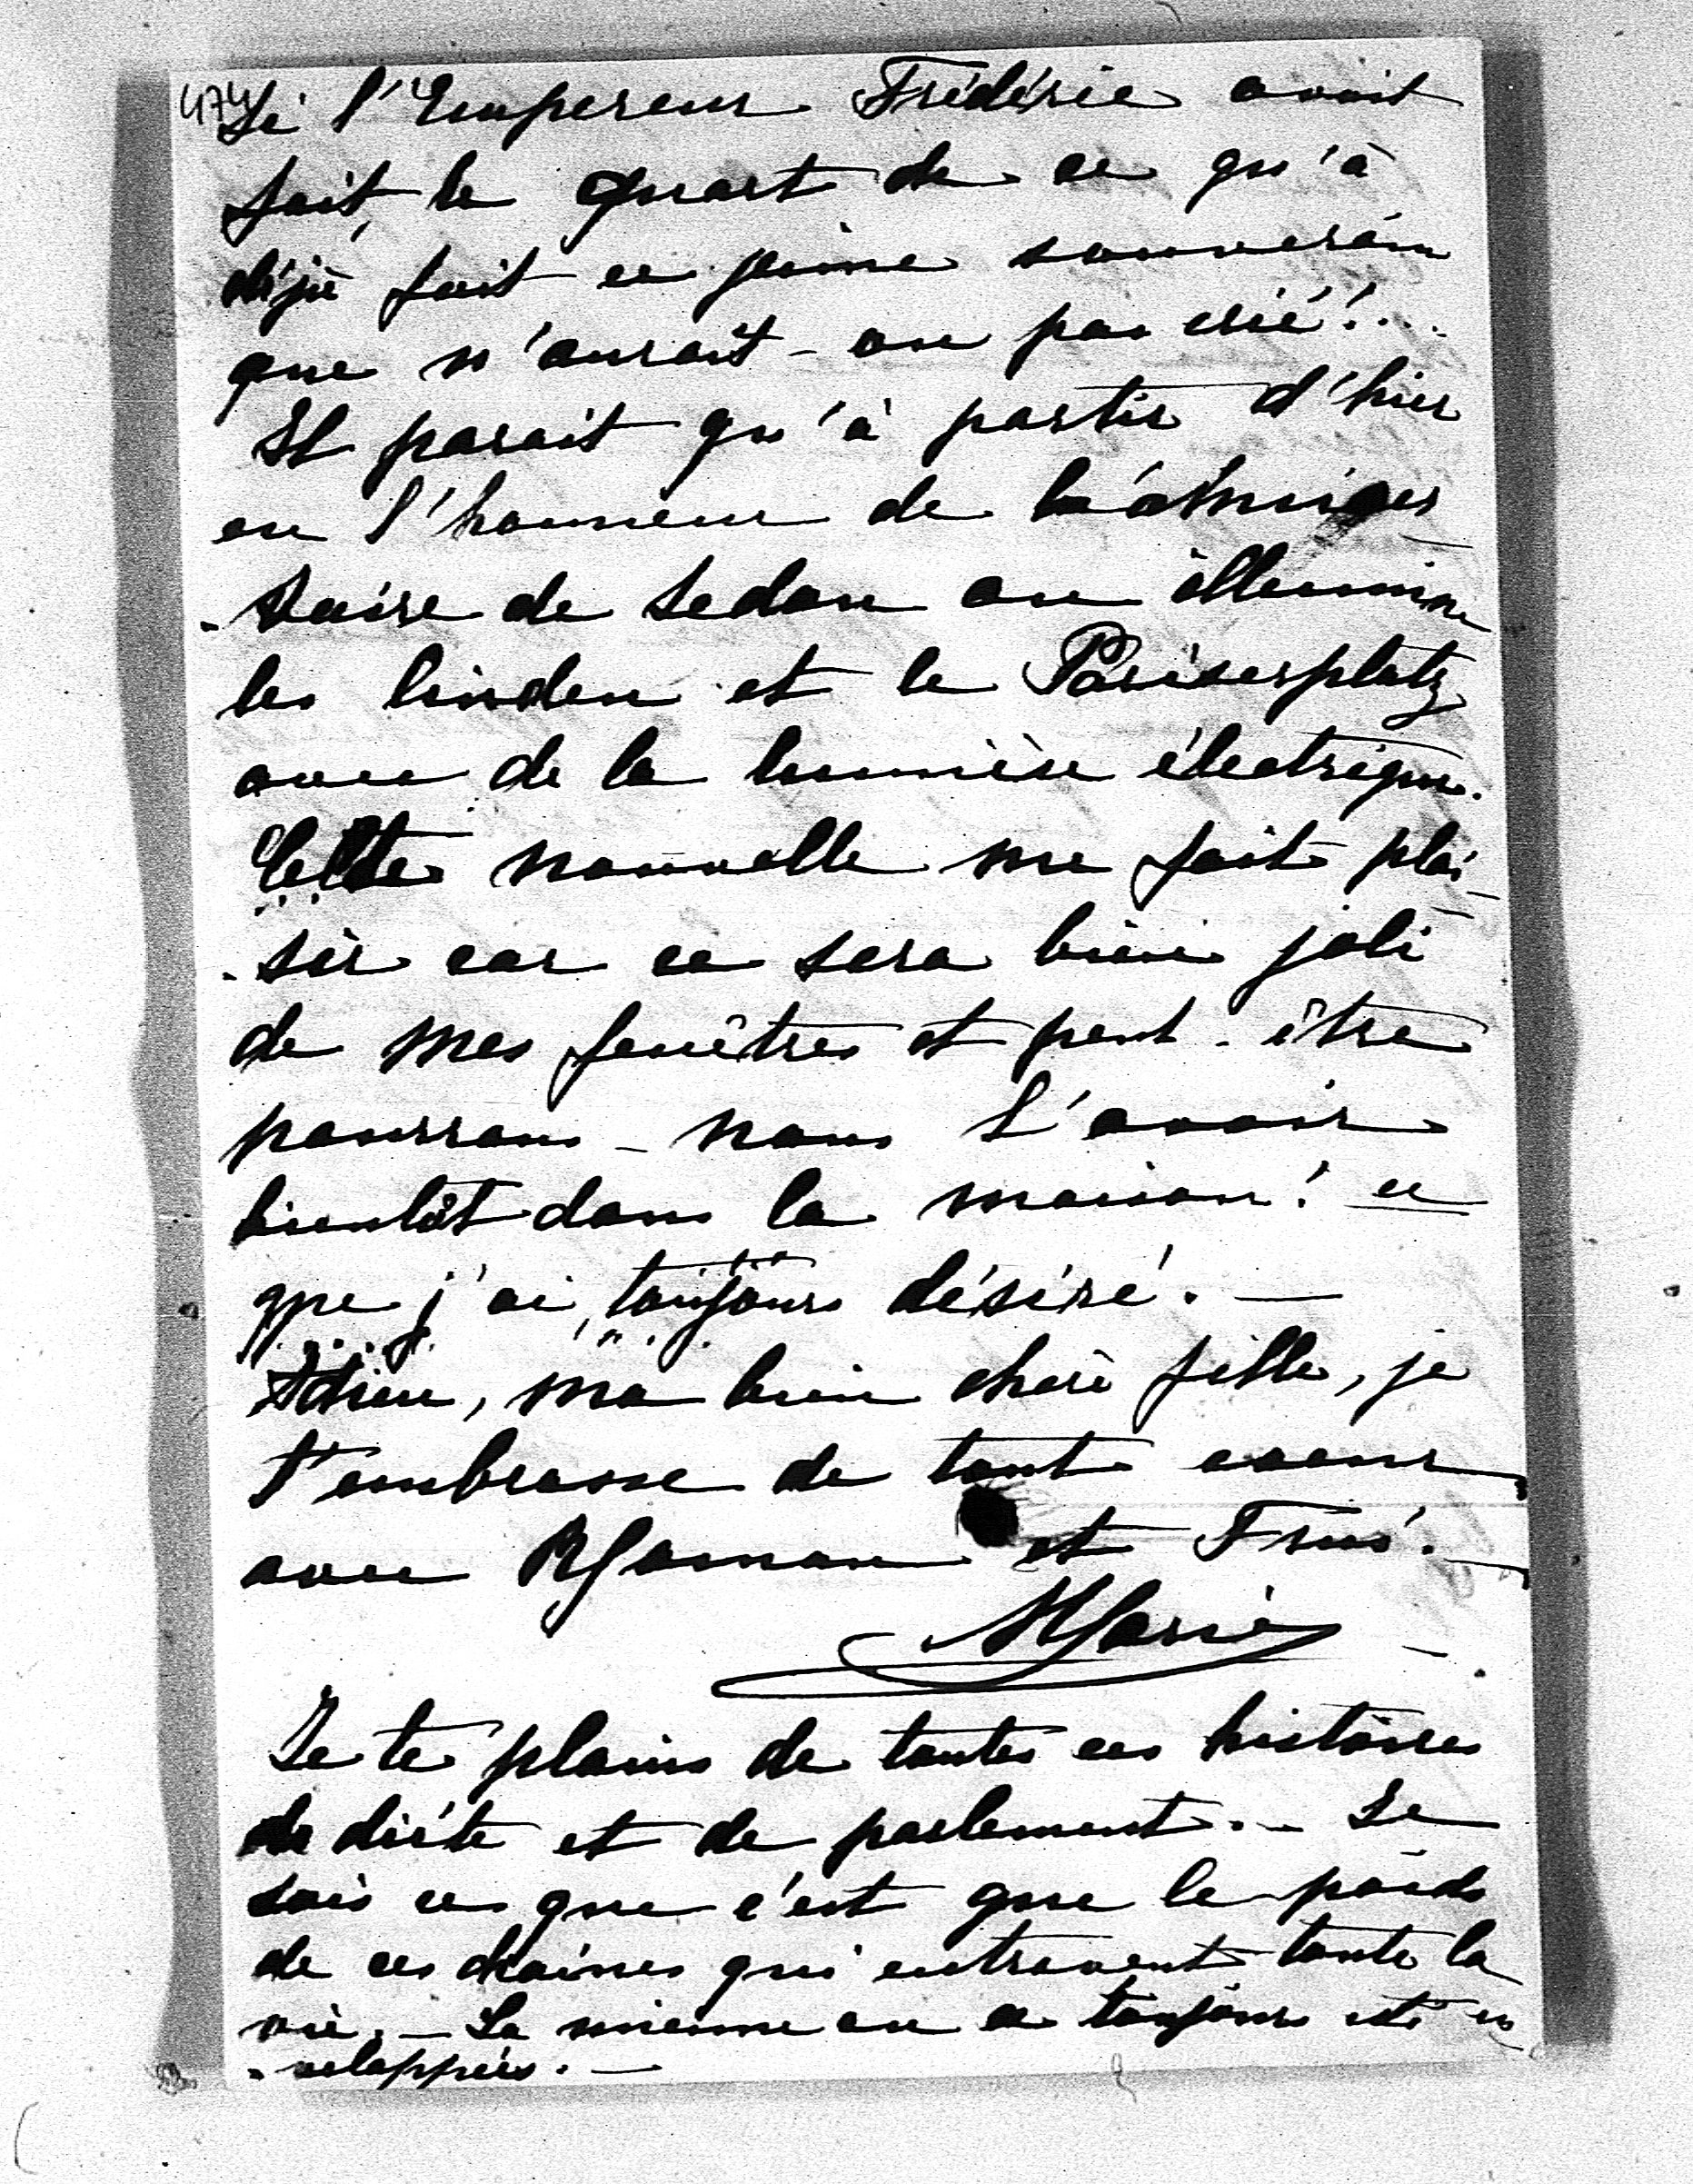 474
Si l'Empereur Frédéric avait
fait le quart de ce qu'à
déjà fait ce jeune souverain
que n'aurait-on pas crié!...
Il parait qu'à partir d'hier
en l'honneur de
-saire de Sedan on illumine
les linden et le Pariserplatz
avec de la lumière électrique.
Cette nouvelle me fait plai-
-sir car ce sera bien joli
de mes fenêtres et peut-être
pourrons-nous l'avoir
bientôt dans la maison! ce
que j'ai toujours désiré. —
Adieu, ma bien chère fille, je
t'embrasse de tout coeur
avec Maman et
Marie
Je te plains de toutes ces histoires
de diète et de parlement. - Je
sais ce que c'est que le poids
de ces chaines qui entravent toute la
vie. — La mienne en a toujours été en
-veloppée. —